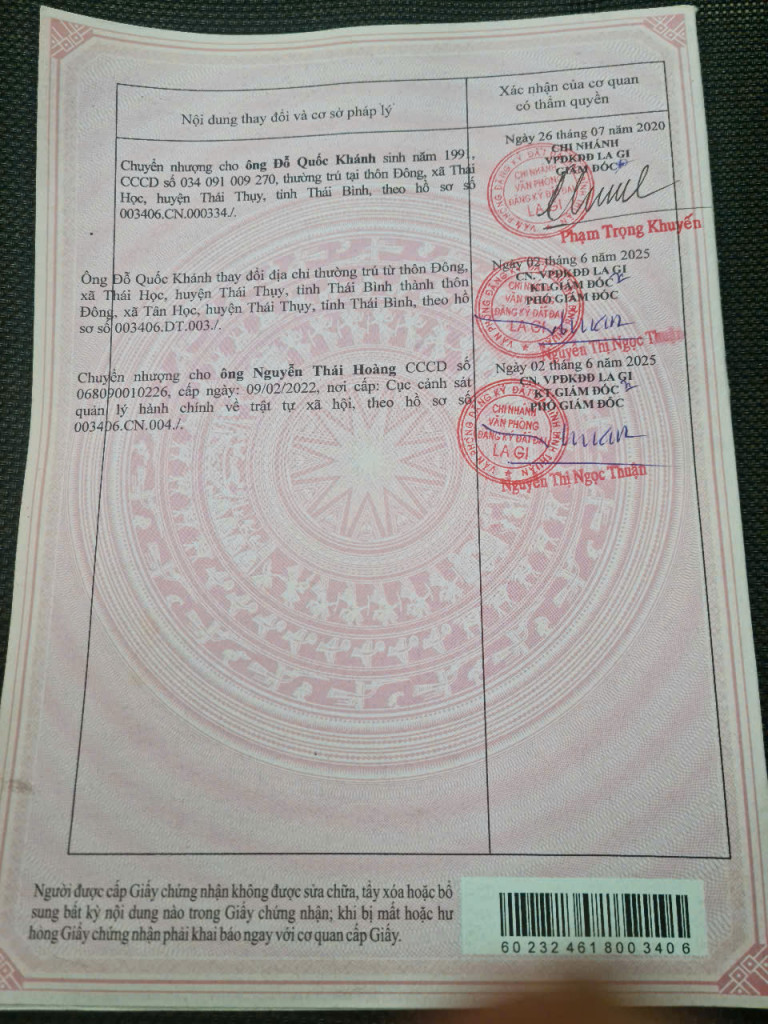 Nội dung thay đổi và cơ sở pháp lý
Xác nhận của cơ quan
có thẩm quyền
Chuyển nhượng cho ông Đỗ Quốc Khánh sinh năm 1991,
CCCD số 034 091 009 270, thường trú tại thôn Đông, xã Thái
Học, huyện Thái Thụy, tỉnh Thái Bình, theo hồ sơ số
003406.CN.000334./.
Ngày 26 tháng 07 năm 2020
CHI NHÁNH
VPĐKĐĐ LA GI
GIÁM ĐỐC
CHI NHÁNH
VĂN PHÒNG
ĐĂNG KÝ ĐẤT ĐAI
LA GI
Phạm Trọng Khuyến
Ông Đỗ Quốc Khánh thay đổi địa chỉ thường trú từ thôn Đông,
xã Thái Học, huyện Thái Thụy, tỉnh Thái Bình thành thôn
Đông, xã Tân Học, huyện Thái Thụy, tỉnh Thái Bình, theo hồ
sơ số 003406.DT.003./.
Ngày 02 tháng 6 năm 2025
CN. VPĐKĐĐ LA GI
KT.GIÁM ĐỐC
PHÓ GIÁM ĐỐC
CHI NHÁNH
VĂN PHÒNG
ĐĂNG KÝ ĐẤT ĐAI
LA GI
Nguyễn Thị Ngọc Thuận
Chuyển nhượng cho ông Nguyễn Thái Hoàng CCCD số
068090010226, cấp ngày: 09/02/2022, nơi cấp: Cục cảnh sát
quản lý hành chính về trật tự xã hội, theo hồ sơ số
003406.CN.004./.
Ngày 02 tháng 6 năm 2025
CN. VPĐKĐĐ LA GI
KT.GIÁM ĐỐC
PHÓ GIÁM ĐỐC
CHI NHÁNH
VĂN PHÒNG
ĐĂNG KÝ ĐẤT ĐAI
LA GI
Nguyễn Thị Ngọc Thuận
Người được cấp Giấy chứng nhận không được sửa chữa, tẩy xóa hoặc bổ
sung bất kỳ nội dung nào trong Giấy chứng nhận; khi bị mất hoặc hư
hỏng Giấy chứng nhận phải khai báo ngay với cơ quan cấp Giấy.
60 232 461800 340 6